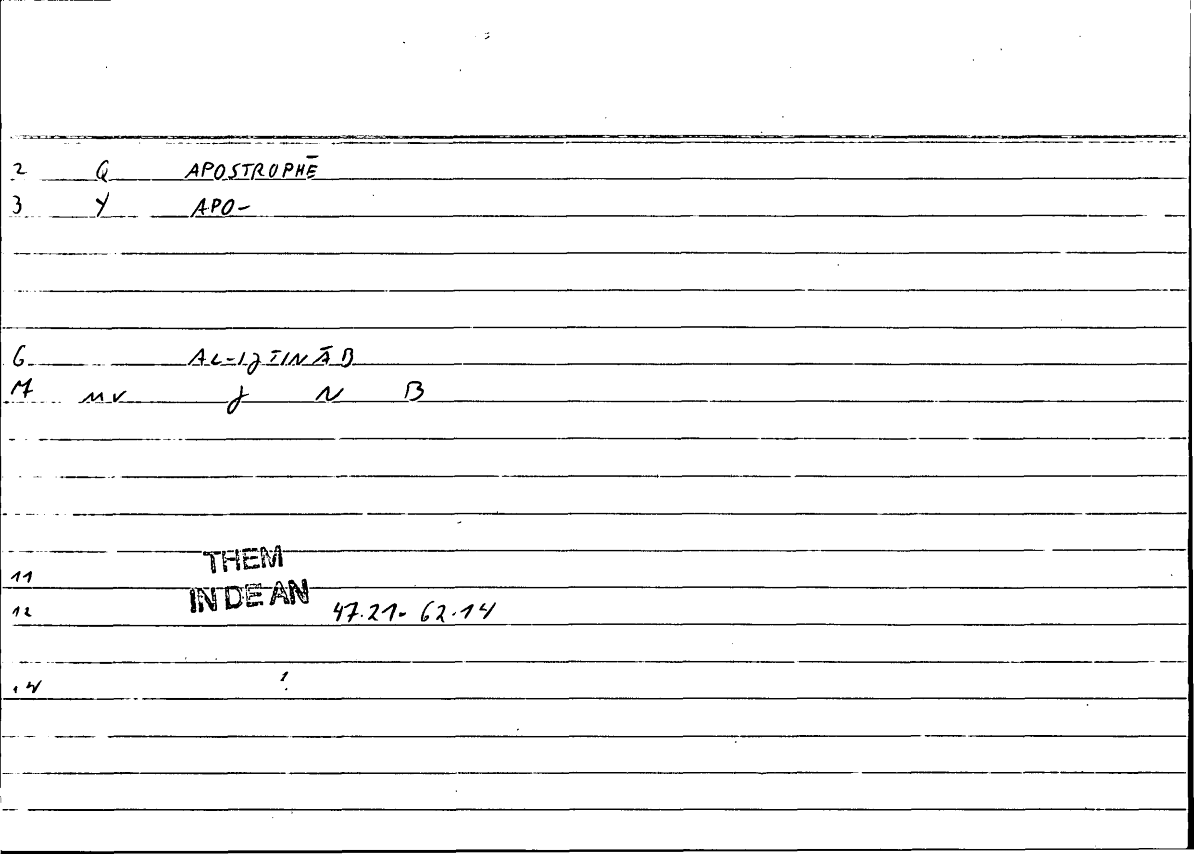 2 Q APOSTROPHĒ
3 Y APO-
6 AL-IJTINĀB
M nv j N B
THEM
11
IN DE AN
12 47.21- 62.14
14 !